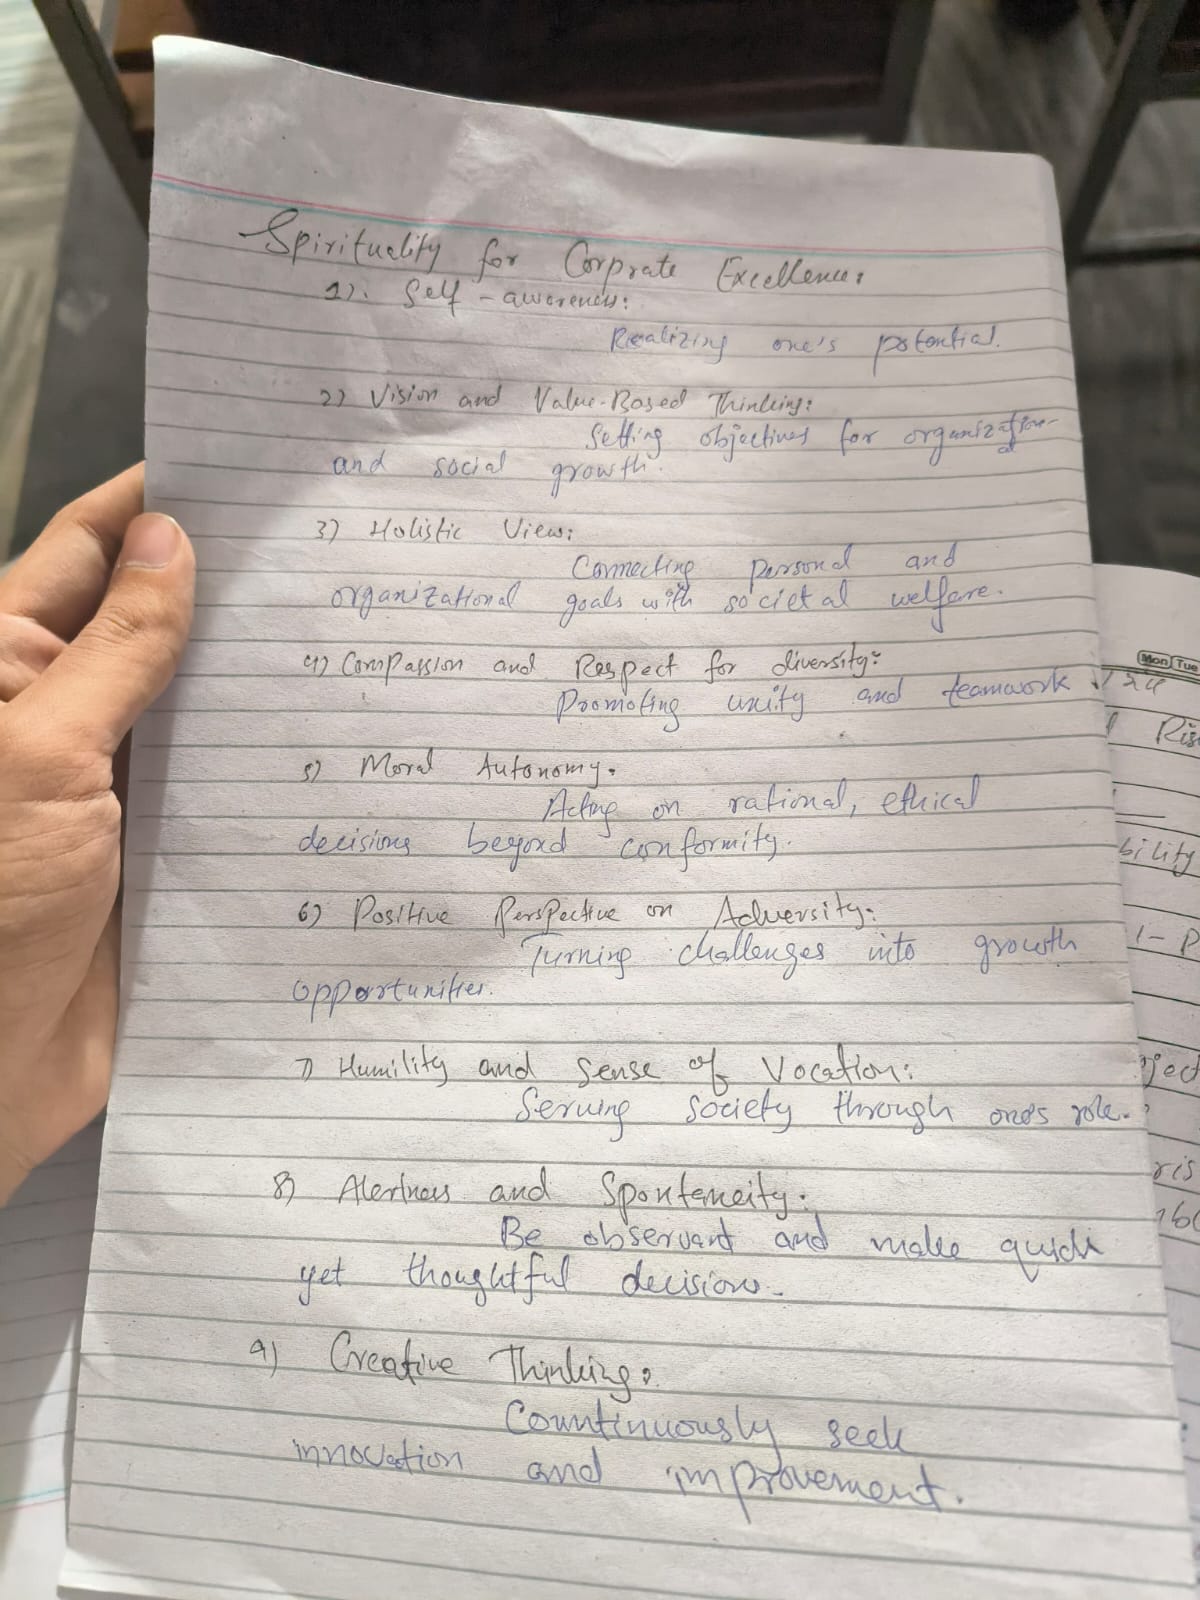 Spirituality for Corprate Excellence:
1). Self-awareness:
Realizing one's potential.
2) Vision and Value-Based Thinking:
Setting objectives for organization-
al
and social growth.
3) Holistic View:
Connecting personal and
organizational goals with societal welfare.
4) Compassion and Respect for diversity:
Promoting unity and teamwork
5) Moral Autonomy:
Acting on rational, ethical
decisions beyond conformity.
6) Positive Perspective on Adversity:
Turning challenges into growth
opportunities.
7) Humility and Sense of Vocation:
Serving society through one's role.
8) Alertness and Spontaneity:
Be observant and make quick
yet thoughtful decisions.
9) Creative Thinking:
Countinuously seek
innovation and improvement.
Mon Tue
Ris
bility
1-P
ject
ris